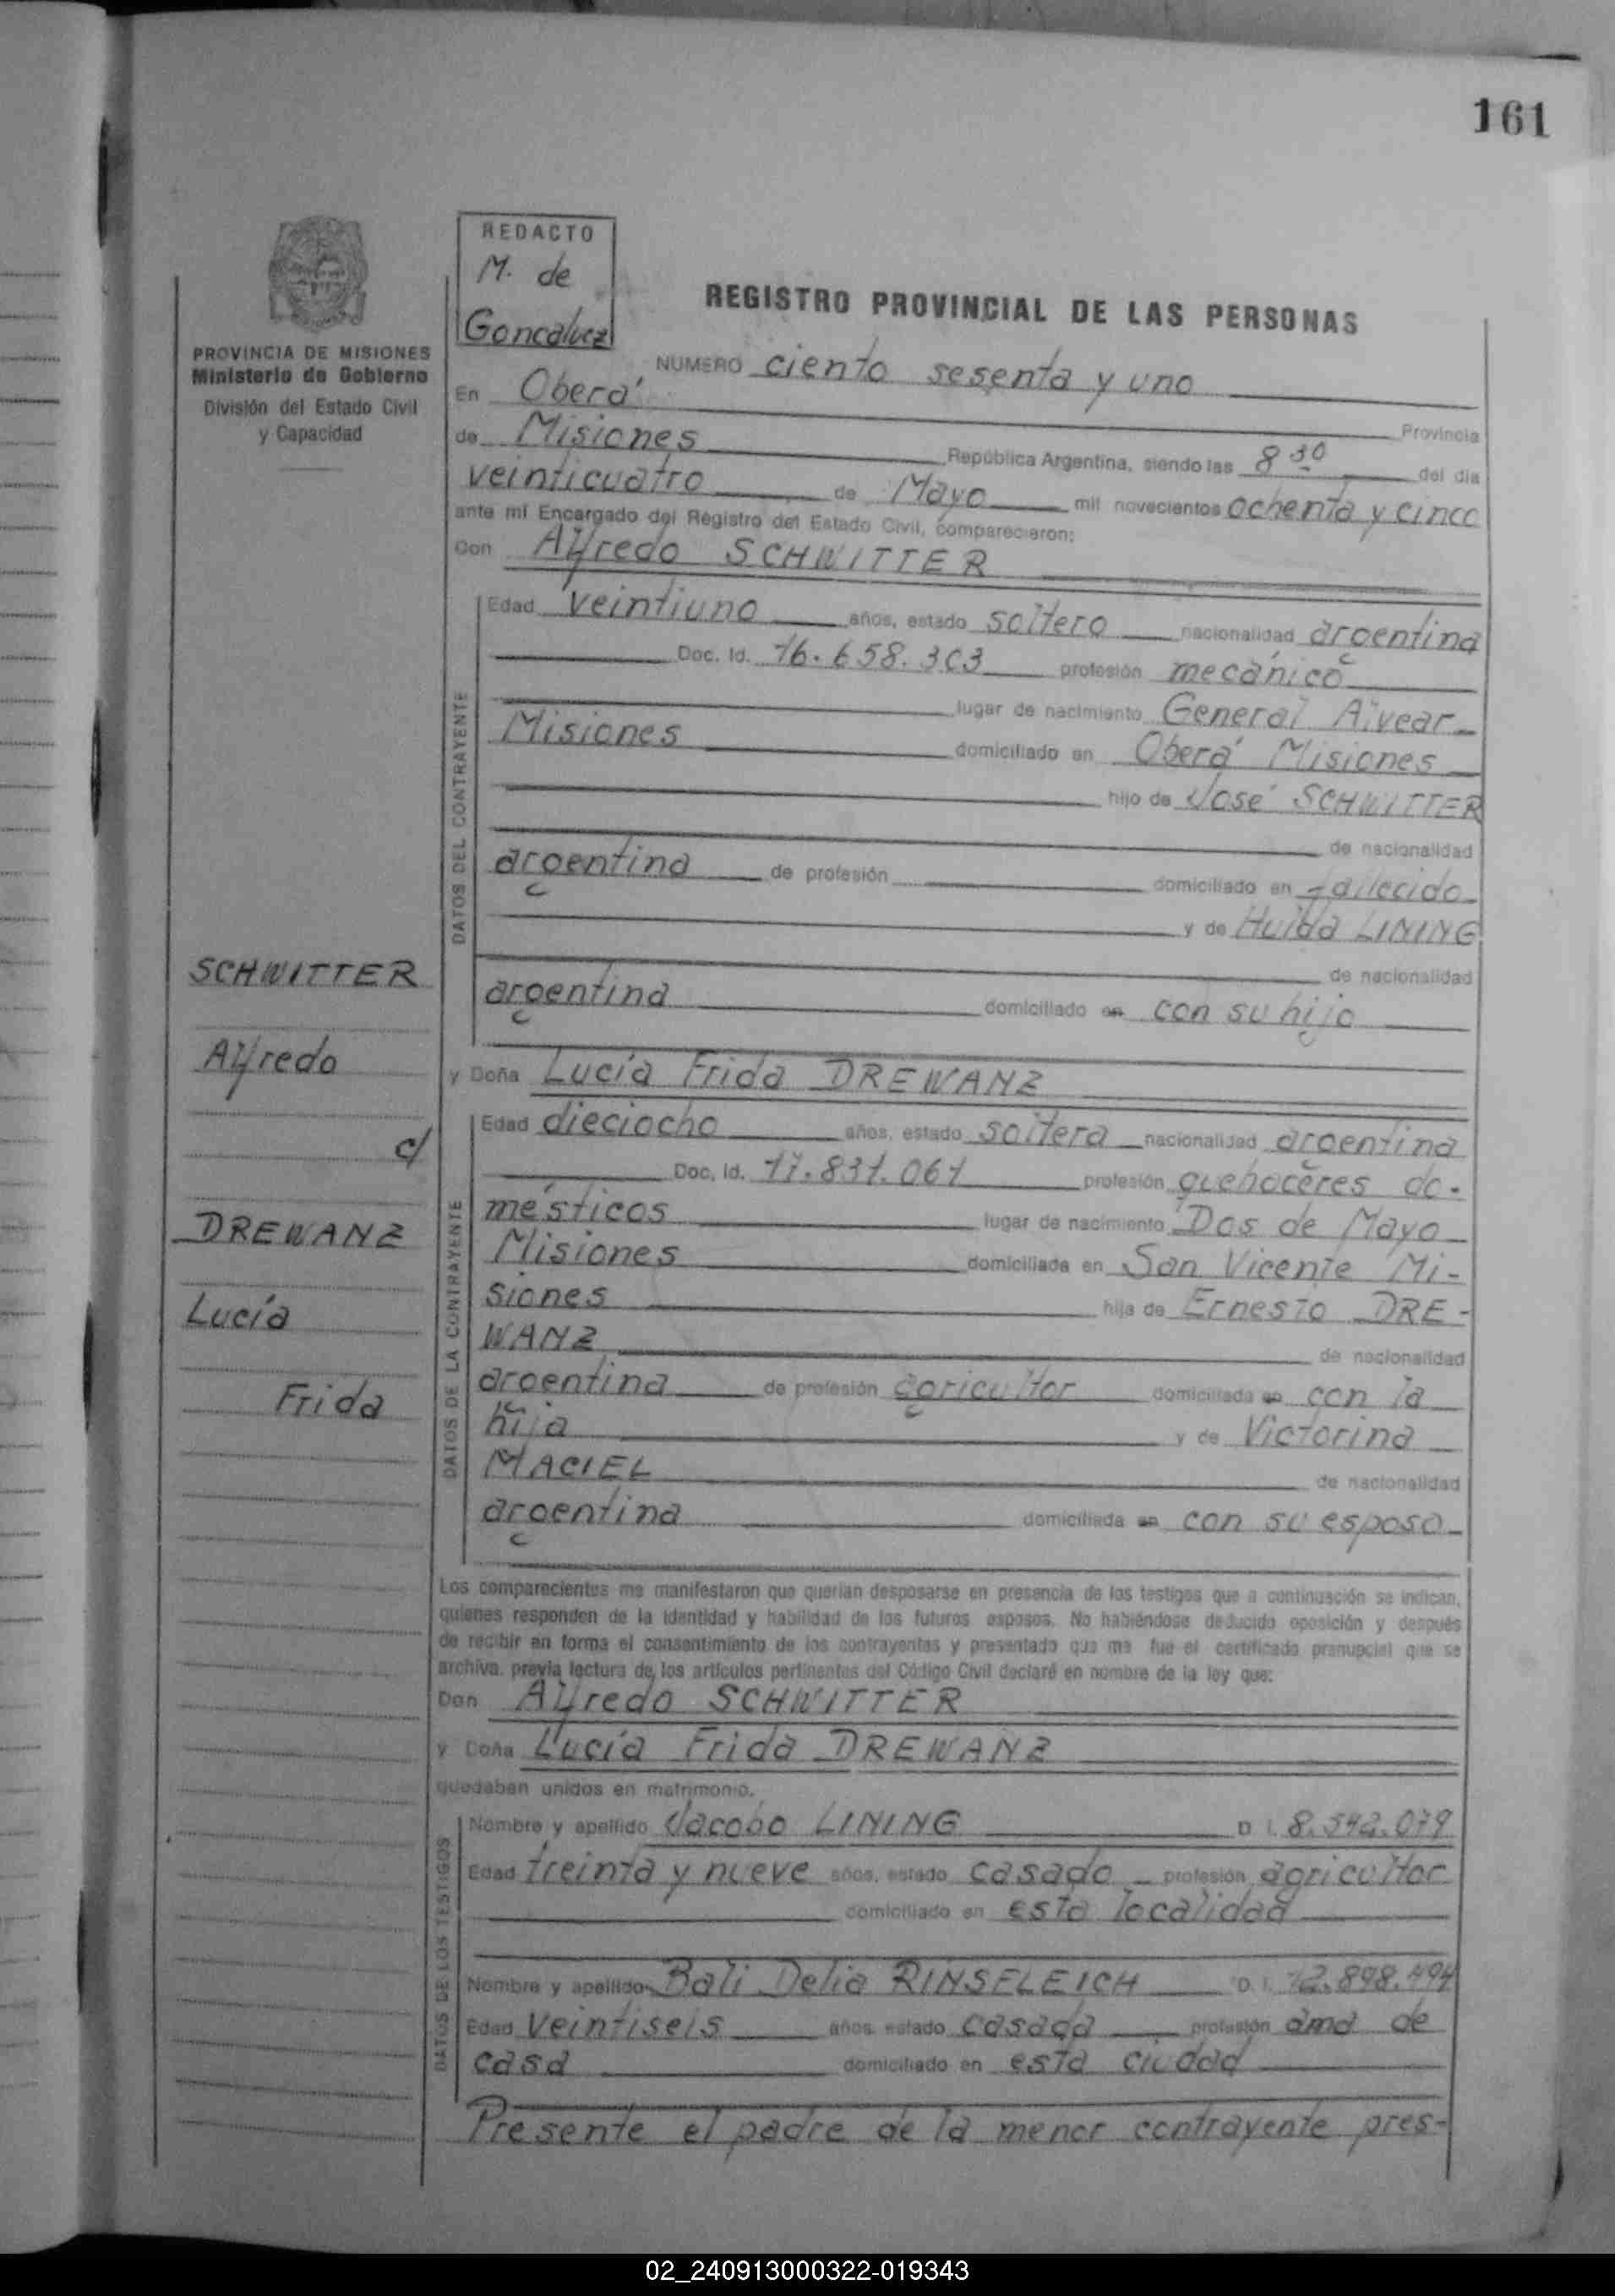 161
REDACTO
M. de
Goncalvez
PROVINCIA DE MISIONES
Ministerio de Gobierno
División del Estado Civil
y Capacidad
REGISTRO PROVINCIAL DE LAS PERSONAS
NUMERO ciento sesenta y uno
En Oberá Provincia
de Misiones República Argentina, siendo las 8 30 del día
veinticuatro de Mayo mil novecientos ochenta y cinco
ante mí Encargado del Registro del Estado Civil, comparecieron:
Don Alfredo SCHWITTER
DATOS DEL CONTRAYENTE
Edad veintiuno años, estado soltero nacionalidad argentina
Doc. Id. 16.658.303 profesión mecánico
lugar de nacimiento General Alvear
Misiones domiciliado en Oberá Misiones
hijo de José SCHWITTER
de nacionalidad
argentina de profesión domiciliado en fallecido
y de Hulda LINING
de nacionalidad
argentina domiciliado en con su hijo
SCHWITTER
Alfredo
c/
DREWANZ
Lucía
Frida
y Doña Lucía Frida DREWANZ
DATOS DE LA CONTRAYENTE
Edad dieciocho años, estado soltera nacionalidad argentina
Doc. Id. 17.831.061 profesión quehaceres do-
mésticos lugar de nacimiento Dos de Mayo
Misiones domiciliada en San Vicente Mi-
siones hija de Ernesto DRE-
WANZ de nacionalidad
argentina de profesión agricultor domiciliada en con la
hija y de Victorina
MACIEL de nacionalidad
argentina domiciliada en con su esposo
Los comparecientes me manifestaron que querían desposarse en presencia de los testigos que a continuación se indican,
quienes responden de la identidad y habilidad de los futuros esposos. No habiéndose deducido oposición y después
de recibir en forma el consentimiento de los contrayentes y presentado que me fue el certificado prenupcial que se
archiva, previa lectura de los artículos pertinentes del Código Civil declaré en nombre de la ley que:
Don Alfredo SCHWITTER
y Doña Lucía Frida DREWANZ
quedaban unidos en matrimonio.
DATOS DE LOS TESTIGOS
Nombre y apellido Jacobo LINING D. I. 8.542.079
Edad treinta y nueve años, estado casado profesión agricultor
domiciliado en esta localidad
Nombre y apellido Bali Delia RINSFLEICH D. I. 12.898.494
Edad veintiseis años, estado casada profesión ama de
casa domiciliado en esta ciudad
Presente el padre de la menor contrayente pres-
02_240913000322-019343